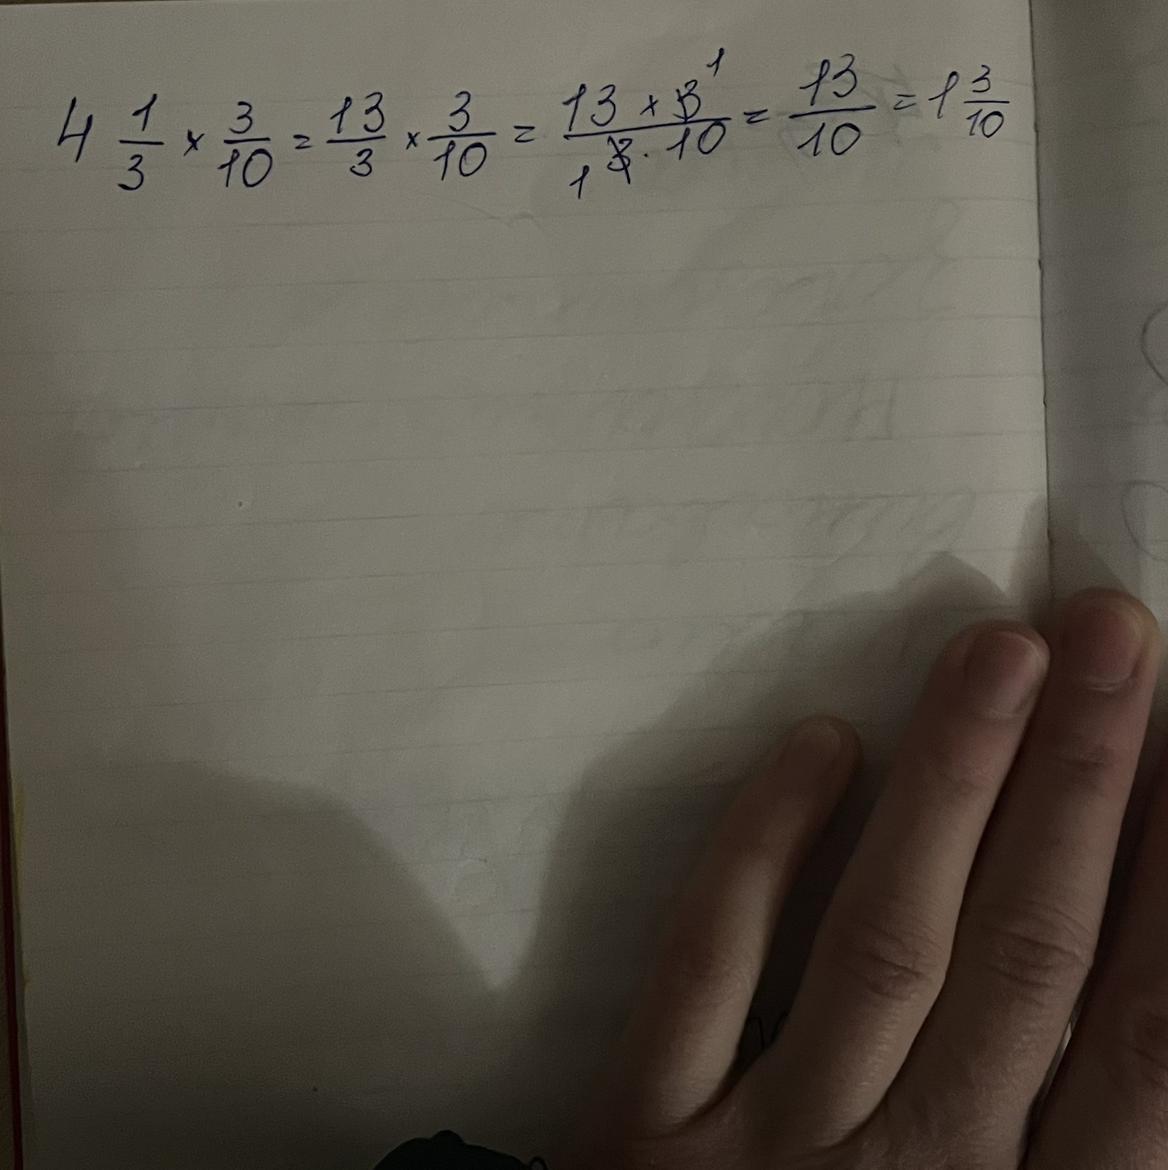 4 1/3 × 3/10 = 13/3 × 3/10 = 13 × 3 1 / 1 3 · 10 = 13/10 = 1 3/10